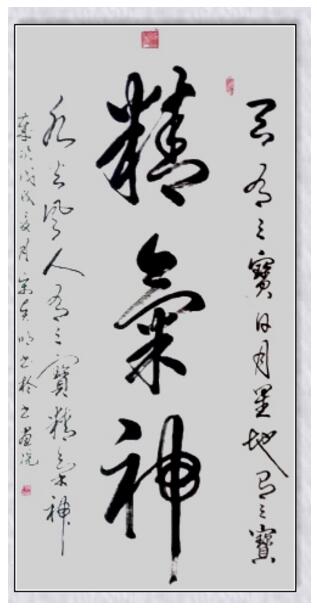 天有三寶日月星地有三寶
精氣神
水火風人有三寶精氣神
戊戌夏月宋明書於書畫院